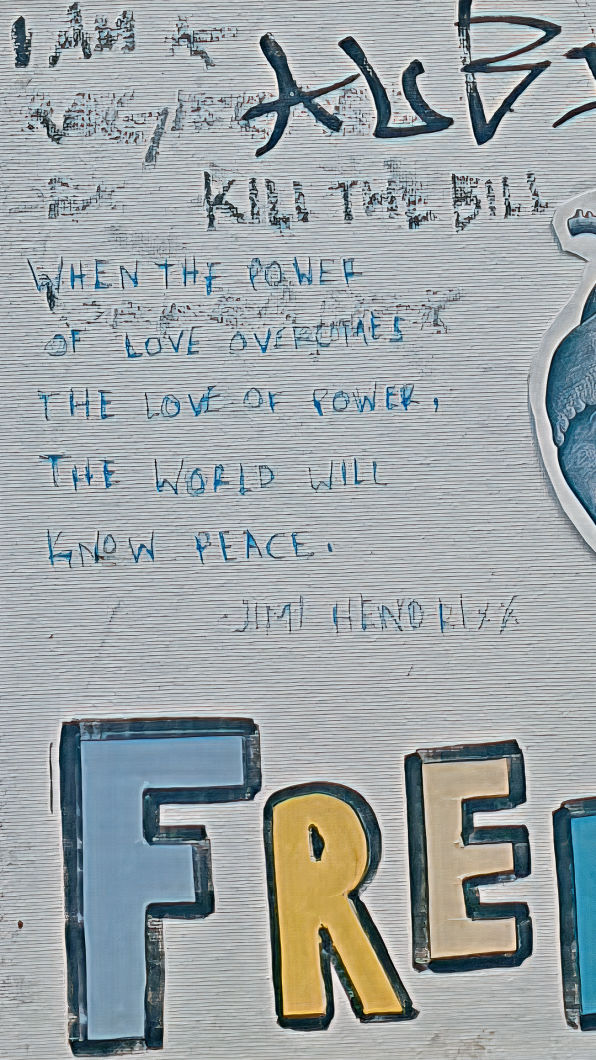 I AM A
KILL THE BILL
WHEN THE POWER
OF LOVE OVERCOMES
THE LOVE OF POWER,
THE WORLD WILL
KNOW PEACE.
JIMI HENDRIXX
FRE